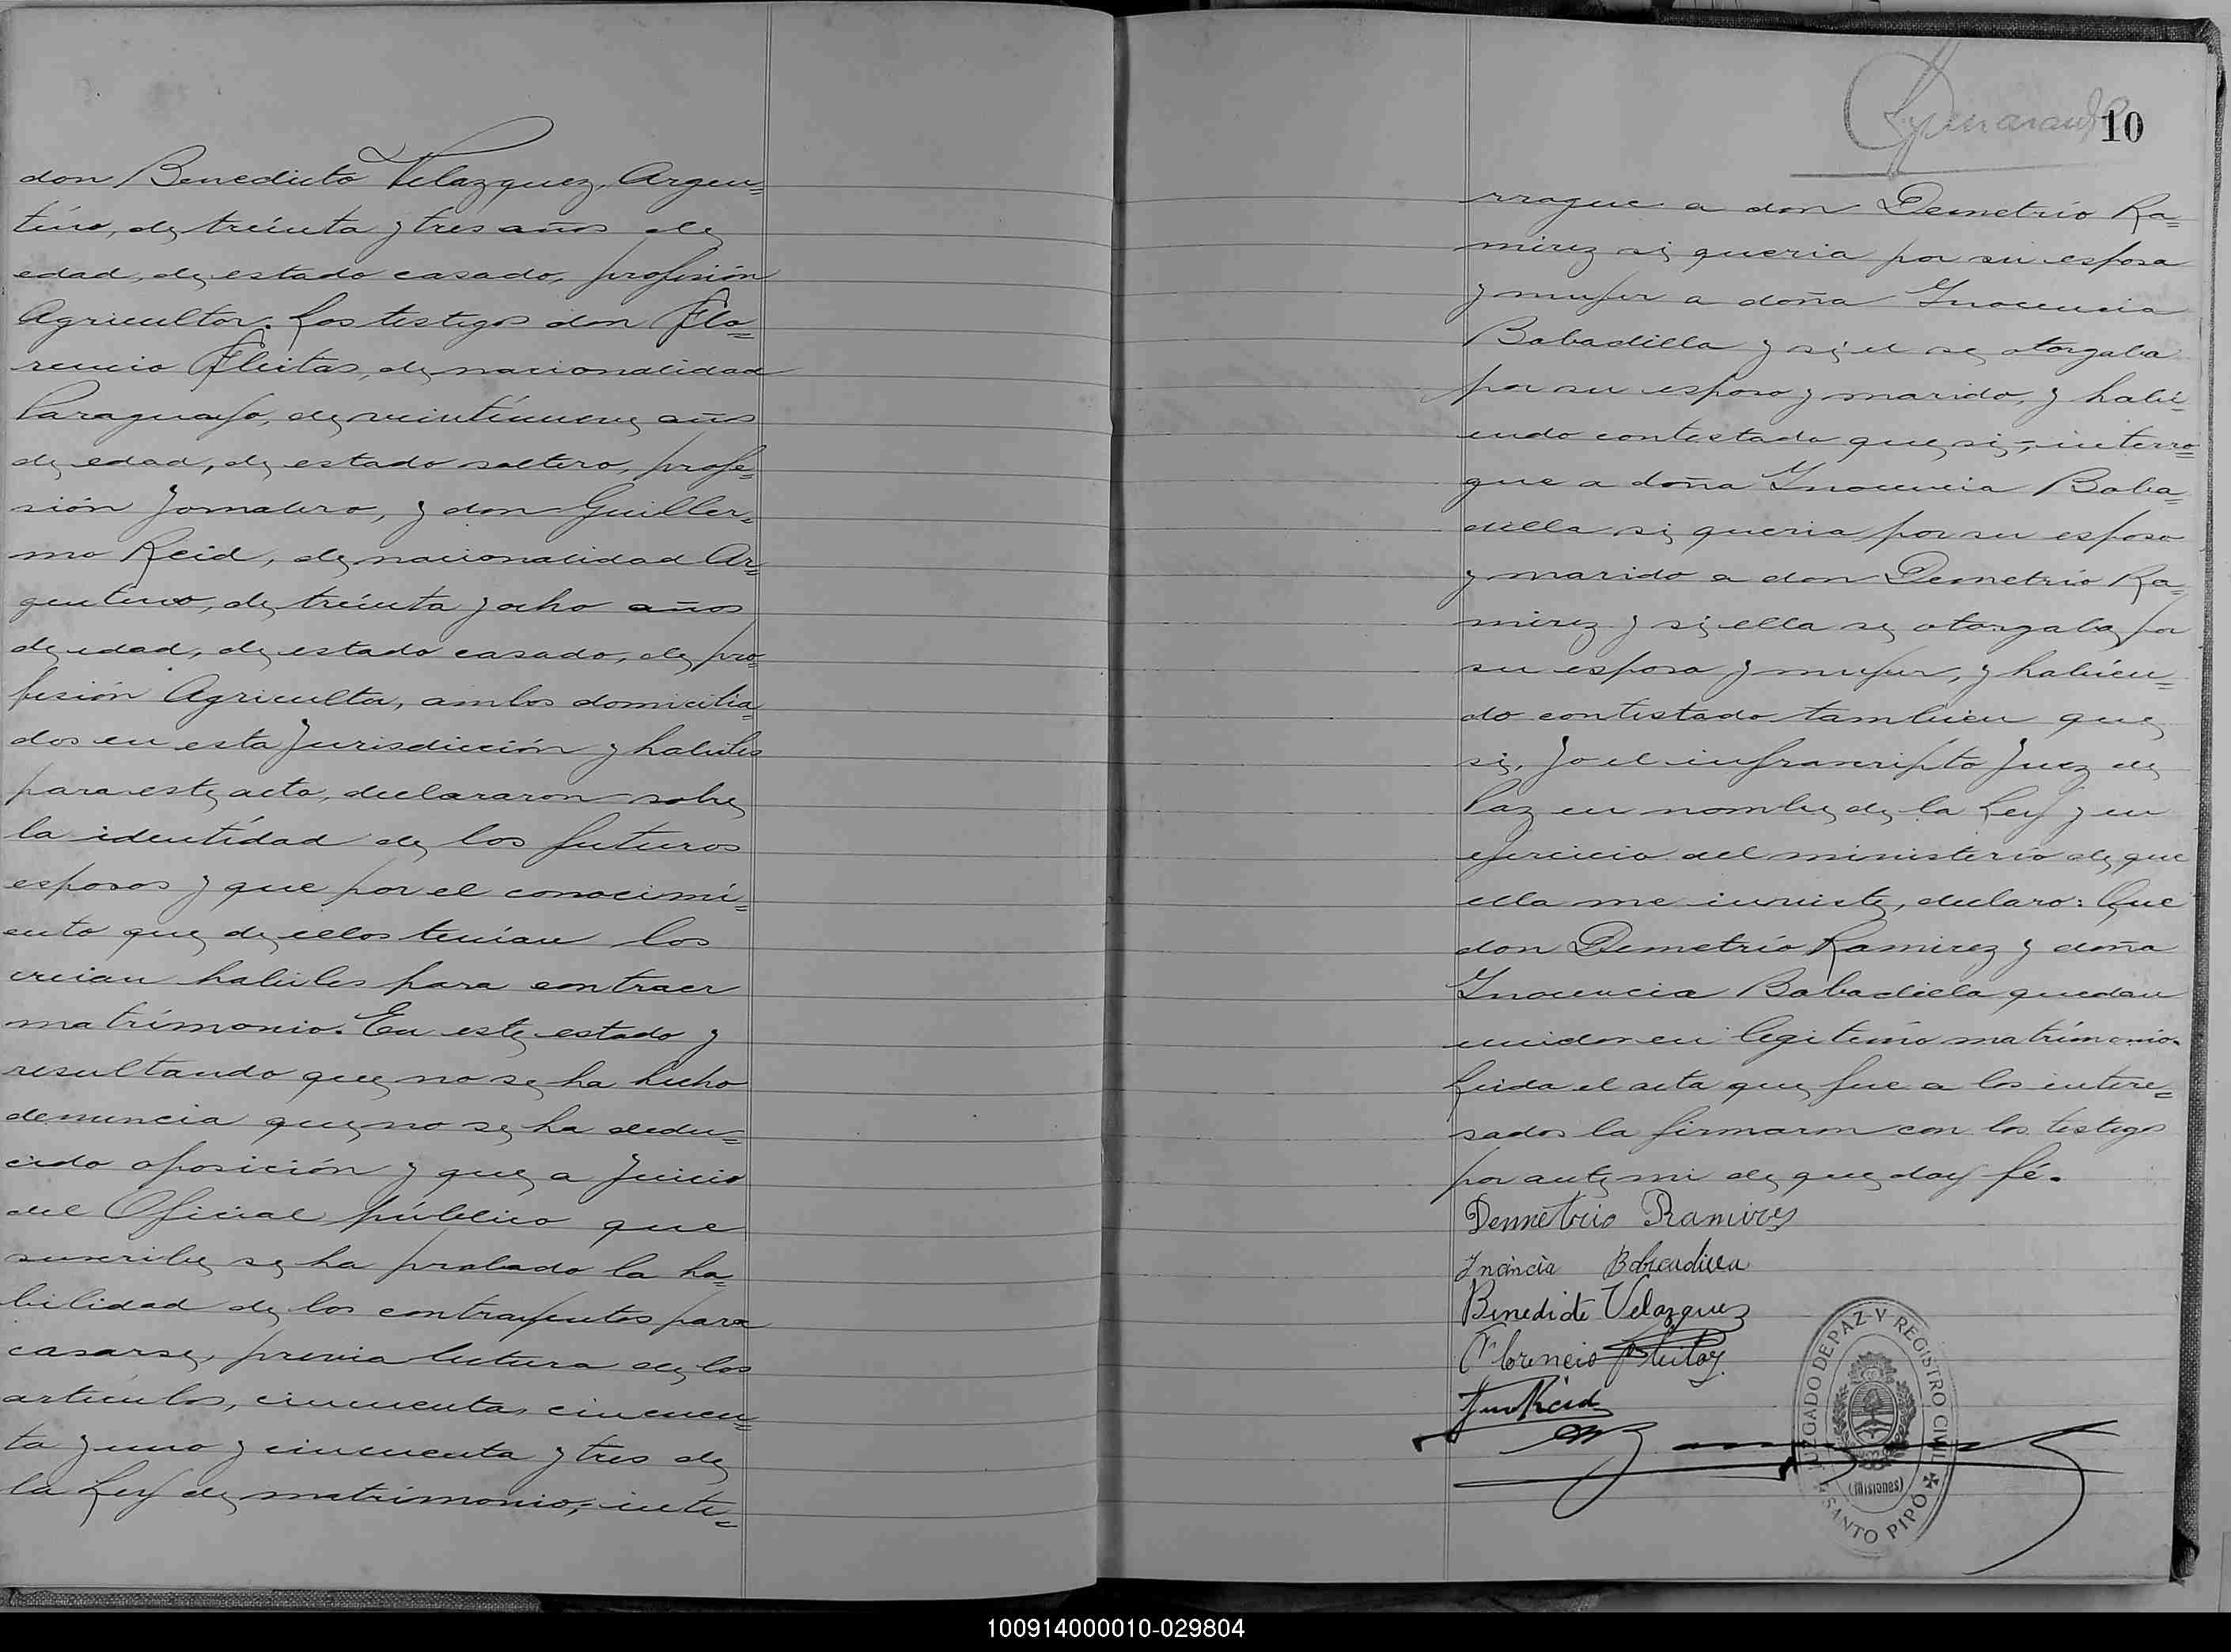 don Benedicto Velazquez, Argen=
tino, de treinta y tres años de
edad, de estado casado, profesión
Agricultor. Los testigos don Flo=
rencio Fleitas, de nacionalidad
Paraguayo, de veintinueve años
de edad, de estado soltero, profe=
sión Jornalero, y don Guiller=
mo Reid, de nacionalidad Ar=
gentino, de treinta y ocho años
de edad, de estado casado, de pro=
fesión Agricultor, ambos domicilia=
dos en esta Jurisdicción y habiles
para este acto, declararon sobre
la identidad de los futuros
esposos y que por el conocimi=
ento que de ellos tenian los
creian habiles para contraer
matrimonio. En este estado y
resultando que no se ha hecho
denuncia que no se ha dedu=
cido oposición y que a Juicio
del Oficial público que
suscribe se ha probado la ha=
bilidad de los contrayentes para
casarse, previa lectura de los
articulos, cincuenta, cincuen=
ta y uno y cincuenta y tres de
la Ley de matrimonio; inte=
10
rrogue a don Demetrio Ra=
mirez si queria por su esposa
y mujer a doña Inocencia
Bobadilla y si el se otorgaba
por su esposo y marido, y habi=
endo contestado que si; interro=
gue a doña Inocencia Boba=
dilla si queria por su esposo
y marido a don Demetrio Ra=
mirez y si ella se otorgaba por
su esposa y mujer, y habien=
do contestado tambien que
si, Yo el infrascripto Juez de
Paz en nombre de la Ley y en
ejercicio del ministerio de que
ella me inviste, declaro: Que
don Demetrio Ramirez y doña
Inocencia Bobadilla quedan
unidos en legitimo matrimonio.
Leida el acta que fue a los intere=
sados la firmaron con los testigos
por ante mi de que doy fé.
Demetrio Ramires
Inocncia Bobadilla
Benedicto Velazquez
Florencio Fleitas
Reid
JUZGADO DE PAZ Y REGISTRO CIVIL
(Misiones)
SANTO PIPÓ
100914000010-029804